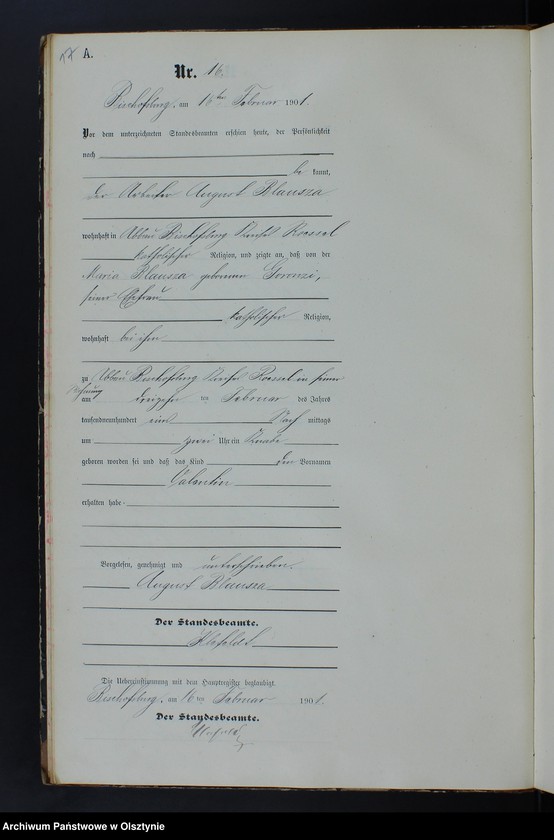 A.
Nr. 16
Bischofsburg, am 16ten Februar 1901.
Vor dem unterzeichneten Standesbeamten erschien heute, der Persönlichkeit
nach
be kannt,
der Arbeiter August Blausza
wohnhaft in Abbau Bischofsburg Kreises Roessel
katholischer Religion, und zeigte an, daß von der
Maria Blausza geborenen Gorenzi,
seiner Ehefrau
katholischer Religion,
wohnhaft bei ihm
zu Abbau Bischofsburg Kreises Roessel in seiner
Wohnung
am dreizehn ten Februar des Jahres
tausendneunhundert eins Nach mittags
um zwei Uhr ein Knabe
geboren worden sei und daß das Kind den Vornamen
Valentin
erhalten habe.
Vorgelesen, genehmigt und unterschrieben.
August Blausza
Der Standesbeamte.
Die Uebereinstimmung mit dem Hauptregister beglaubigt.
Bischofsburg, am 16ten Februar 1901.
Der Standesbeamte.
Archiwum Państwowe w Olsztynie